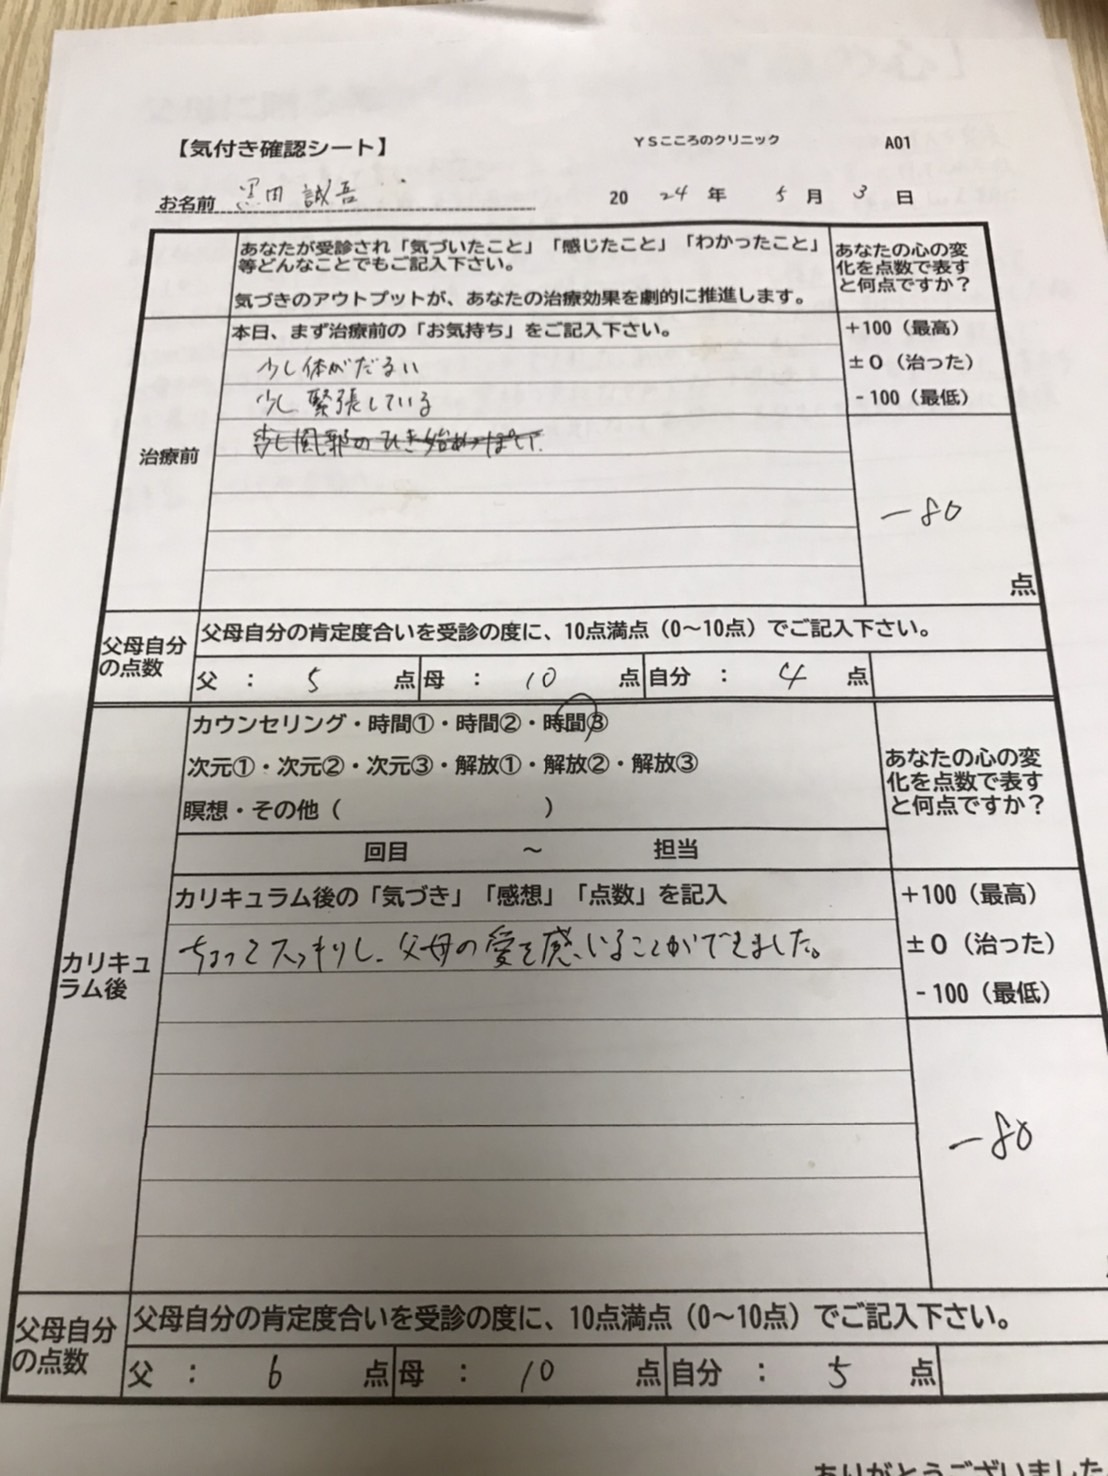 【気付き確認シート】 YSこころのクリニック A01
お名前 黒田 誠吾 2024年 5月 3日
あなたが受診され「気づいたこと」「感じたこと」「わかったこと」
等どんなことでもご記入下さい。
気づきのアウトプットが、あなたの治療効果を劇的に推進します。
あなたの心の変
化を点数で表す
と何点ですか？
治療前
本日、まず治療前の「お気持ち」をご記入下さい。
少し体がだるい
少し緊張している
少し風邪のひき始めっぽい
+100（最高）
±0（治った）
-100（最低）
-80
点
父母自分
の点数
父母自分の肯定度合いを受診の度に、10点満点（0～10点）でご記入下さい。
父 : 5 点 母 : 10 点 自分 : 4 点
カリキュ
ラム後
カウンセリング・時間①・時間②・時間③
次元①・次元②・次元③・解放①・解放②・解放③
瞑想・その他（ ）
回目 ～ 担当
あなたの心の変
化を点数で表す
と何点ですか？
カリキュラム後の「気づき」「感想」「点数」を記入
ちょっとスッキリし、父母の愛を感じることができました。
+100（最高）
±0（治った）
-100（最低）
-80
父母自分
の点数
父母自分の肯定度合いを受診の度に、10点満点（0～10点）でご記入下さい。
父 : 6 点 母 : 10 点 自分 : 5 点
ありがとうございました